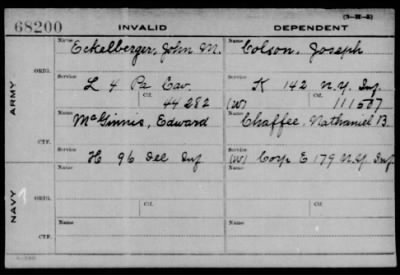 (3-H-3)
68200 INVALID DEPENDENT
Name Name
Eckelberger, John M. Colson, Joseph
ORIG. Service Service
L 4 Pa Cav. K 142 N.Y. Inf
Ctf. Ctf.
44282 (W) 111507
ARMY
Name Name
McGinnis, Edward Chaffee, Nathaniel B.
CTF. Service Service
H 96 Ill Inf (W) Corp E 179 N.Y. Inf
NAVY
ORIG. Name Ctf. Name Ctf.
Service Service
CTF. Name Name
Service Service